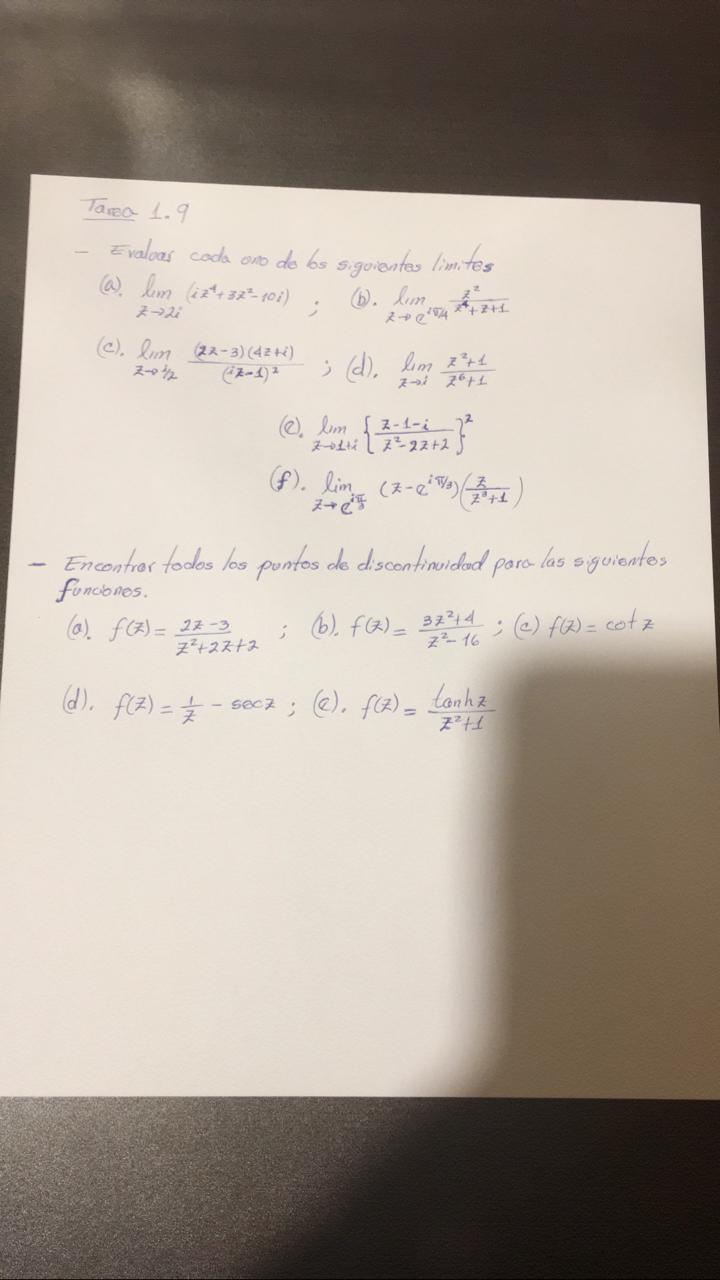 Tarea 1.9
- Evaluar cada uno de los siguientes limites
(a). lim z→2i (iz⁴+3z²-10i) ; (b). lim z→e^(iπ/4) z²/(z⁴+z+1)
(c). lim z→i/2 (2z-3)(4z+i)/(iz-1)² ; (d). lim z→i (z²+1)/(z⁶+1)
(e). lim z→1+i {(z-1-i)/(z²-2z+2)}²
(f). lim z→e^(iπ/3) (z-e^(iπ/3))(z/(z³+1))
- Encontrar todos los puntos de discontinuidad para las siguientes
funciones.
(a). f(z)= (2z-3)/(z²+2z+2) ; (b). f(z)= (3z²+4)/(z²-16) ; (c) f(z)= cot z
(d). f(z)= 1/z - sec z ; (e). f(z)= tanh z/(z²+1)